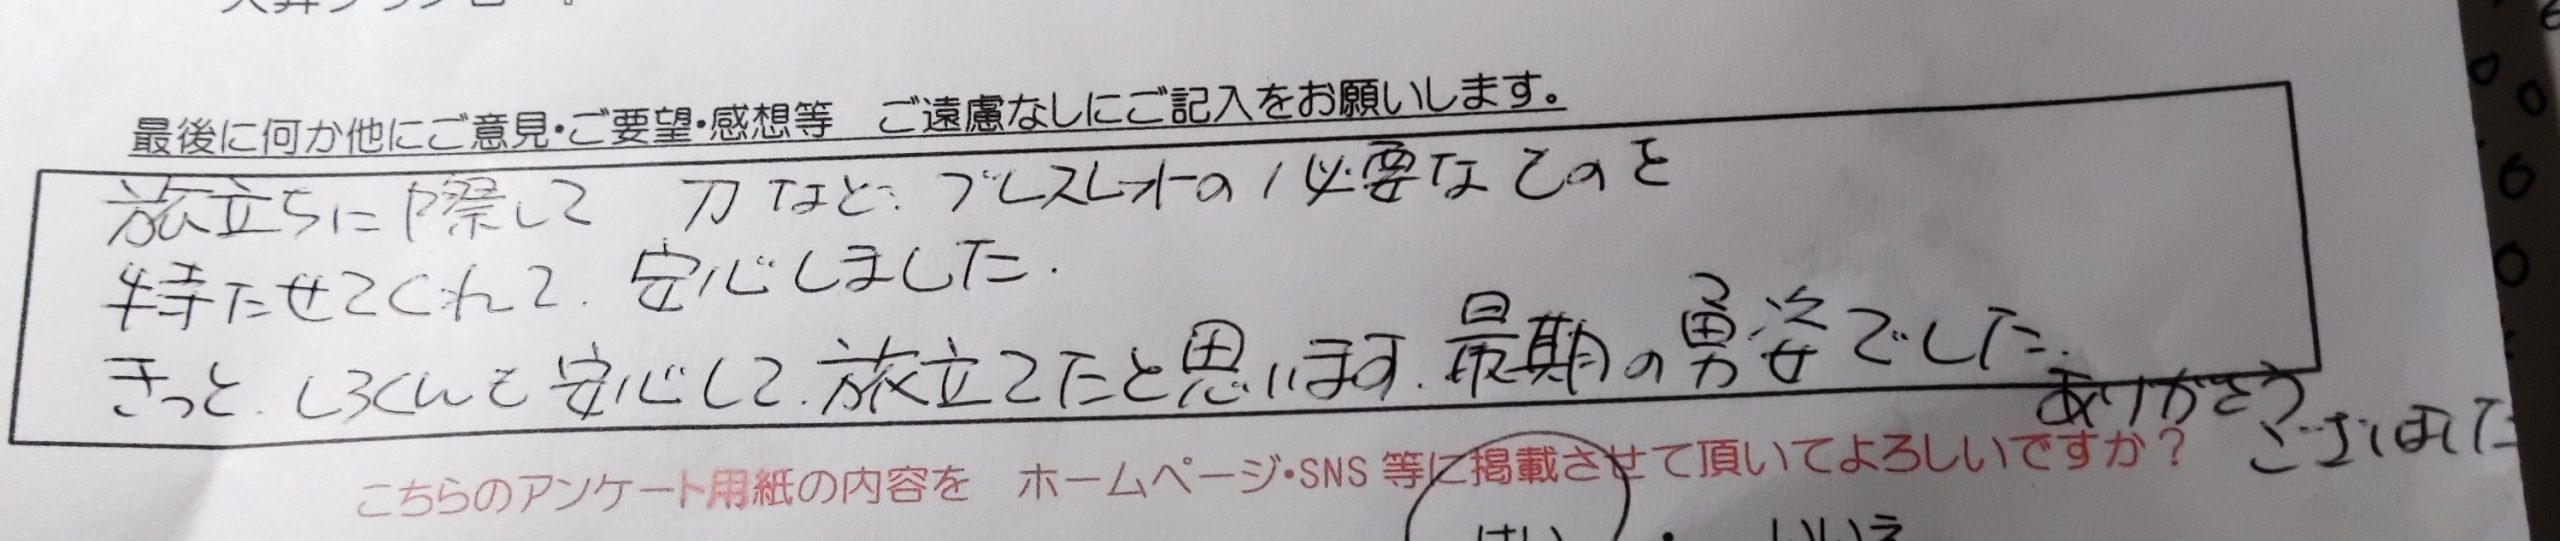 最後に何か他にご意見・ご要望・感想等　ご遠慮なしにご記入をお願いします。
旅立ちに際して 刀など、ブレスレットの必要なものを
持たせてくれて、安心しました.
きっと、しろくんも安心して、旅立てたと思います。最期の勇姿でした。
ありがとう
ございました
こちらのアンケート用紙の内容を　ホームページ・SNS 等に掲載させて頂いてよろしいですか？
はい ・ いいえ